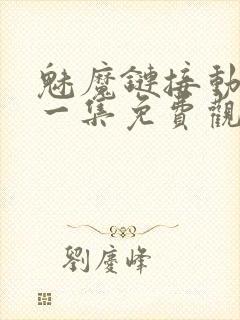 魅魔鏈接動
一集免費觀
劉慶峰